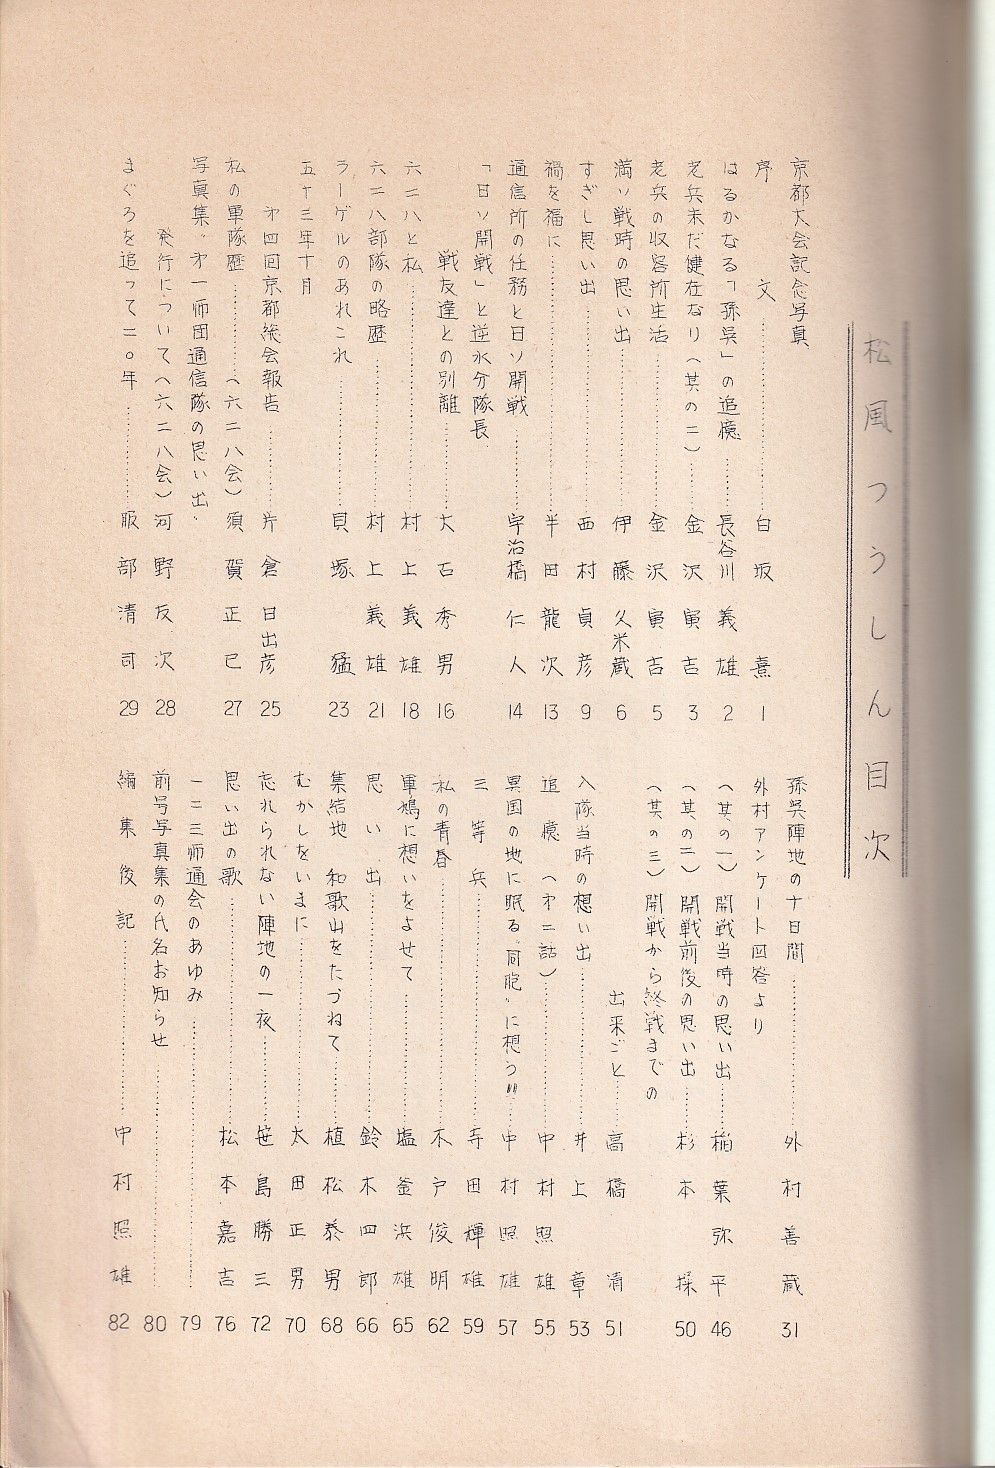 松風つうしん目次
京都大会記念写真
序文 白坂熹 1
はるかなる「孫呉」の追憶 長谷川義雄 2
老兵未だ健在なり（其の二） 金沢寅吉 3
老兵の収容所生活 金沢寅吉 5
満ソ戦時の思い出 伊藤久米蔵 6
すぎし思い出 西村貞彦 9
禍を福に 半田龍次 13
通信所の任務と日ソ開戦 宇治橋仁人 14
「日ソ開戦」と逆水分隊長
戦友達との別離 大石秀男 16
六二八と私 村上義雄 18
六二八部隊の略歴 村上義雄 21
ラーゲルのあれこれ 貝塚猛 23
五十三年十月
才四回京都総会報告 片倉日出彦 25
私の軍隊歴 （六二八会）須賀正已 27
写真集〝才一師団通信隊の思い出〟
発行について（六二八会）河野友次 28
まぐろを追って二〇年 服部清司 29
孫呉陣地の十日間 外村善蔵 31
外村アンケート回答より
（其の一）開戦当時の思い出 稲葉弥平 46
（其の二）開戦前後の思い出 杉本操 50
（其の三）開戦から終戦までの
出来ごと 高橋清 51
入隊当時の想い出 井上章 53
追憶（才二話） 中村照雄 55
異国の地に眠る〝同胞〟に想う!! 中村照雄 57
三等兵 寺田輝雄 59
私の青春 木戸俊明 62
軍鳩に想いをよせて 塩釜浜雄 65
思い出 鈴木四郎 66
集結地 和歌山をたづねて 植松泰男 68
むかしをいまに 太田正男 70
忘れられない陣地の一夜 笹島勝三 72
思い出の歌 松本嘉吉 76
一二三師通会のあゆみ 79
前号写真集の氏名お知らせ 80
編集後記 中村照雄 82